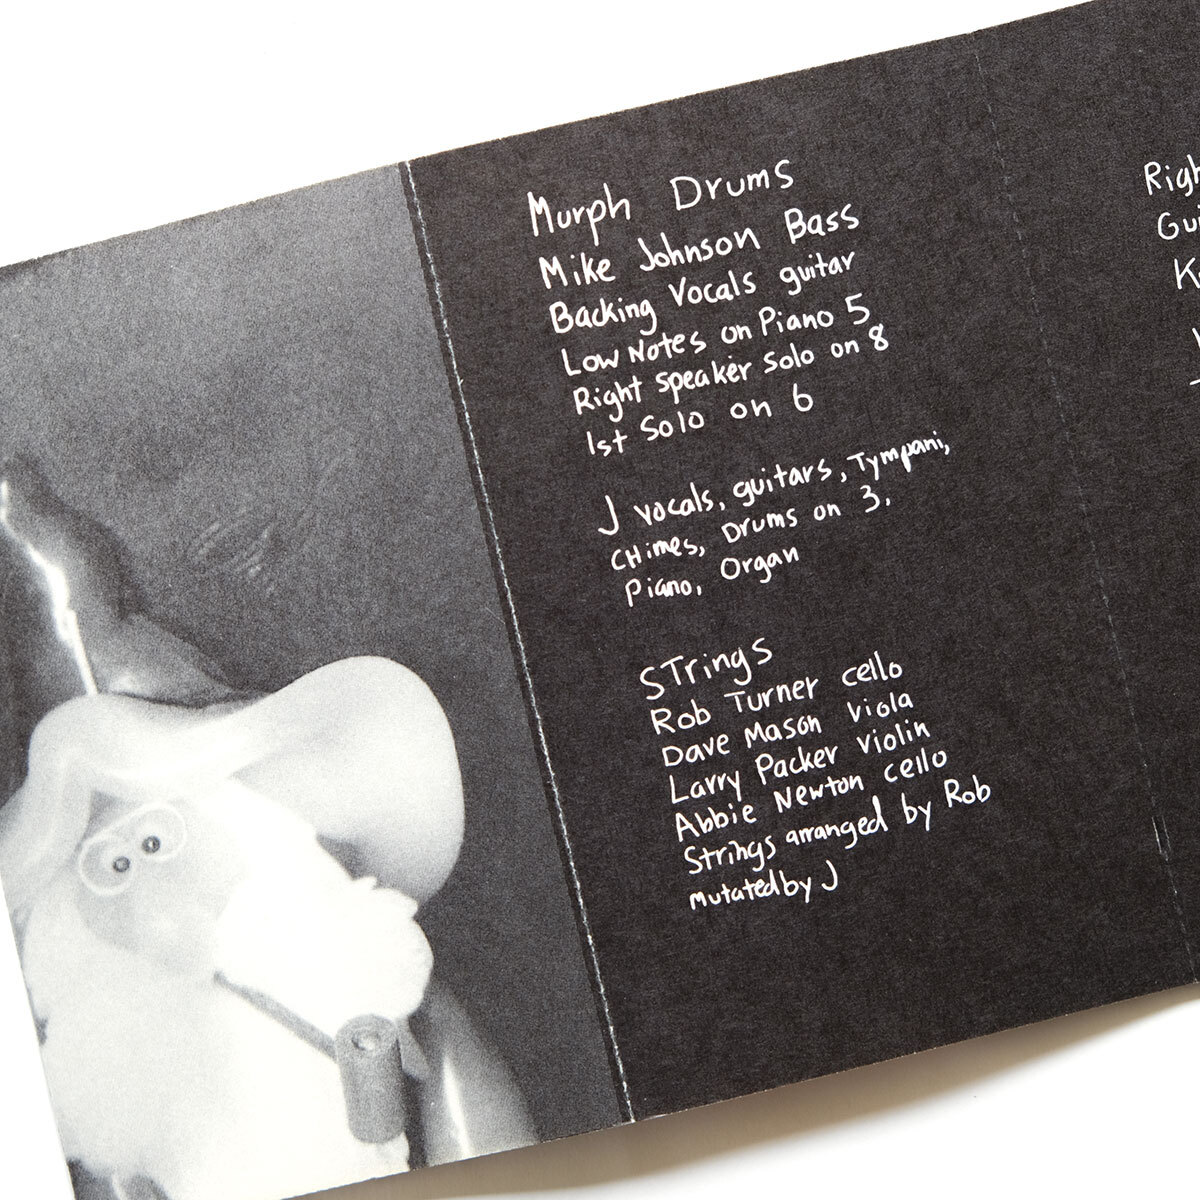 Murph Drums
Mike Johnson Bass
Backing Vocals guitar
Low Notes on Piano 5
Right Speaker Solo on 8
1st Solo on 6
J vocals, guitars, Tympani,
CHimes, Drums on 3,
Piano, Organ
STrings
Rob Turner cello
Dave Mason viola
Larry Packer violin
Abbie Newton cello
Strings arranged by Rob
mutated by J